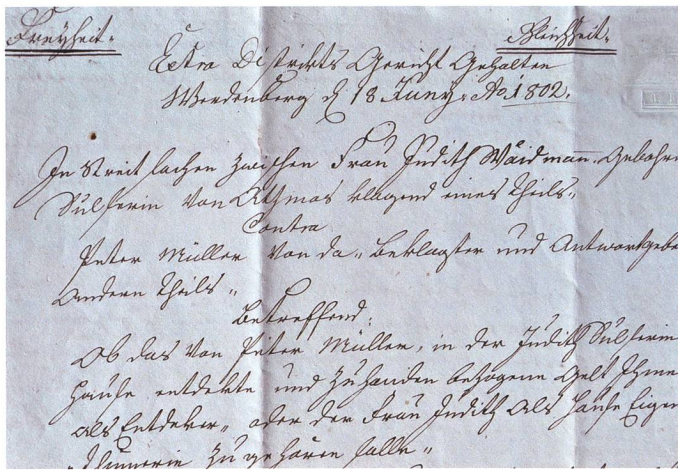 Freyheit. Gleichheit.
Extra Distrikts Gericht Gehalten
Werdenberg d 18 Juny. Ao 1802.
In Streit sachen zwischen Frau Judith Waidman. Gebohrne
Sulserin von Athmos klagend eines Theils.
Contra
Peter Müller von da. Beklagter und Antwortgebe
Andern Theils.
Betreffend:
Ob das von Peter Müller, in der Judith Sulserin
Hause entdekte und zuhanden bezogene Gelt Ihme
als Entdeker, oder der Frau Judith als Hause Eigen
thümerin zu gehören solle.